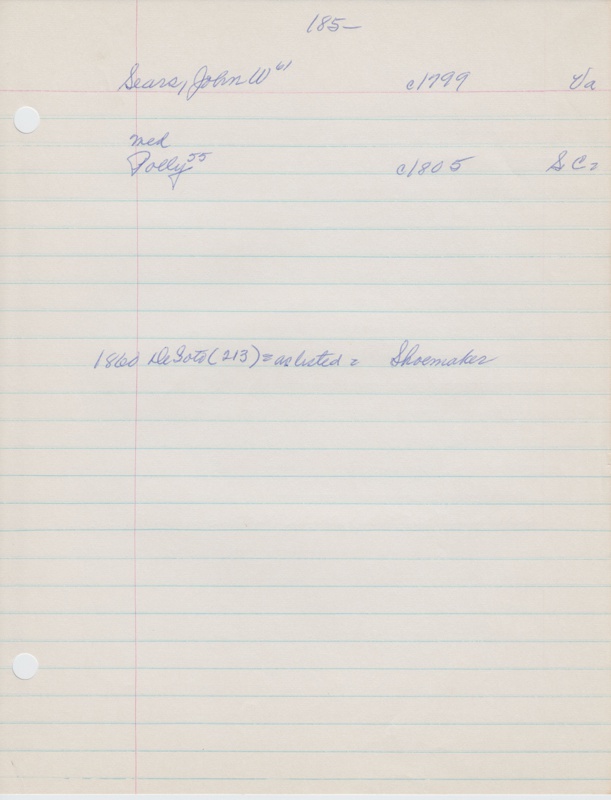 185—
Sears, John W 61 c1799 Va
med
Polly 55 c1805 S C =
1860 DeSoto (213) = as listed = Shoemaker